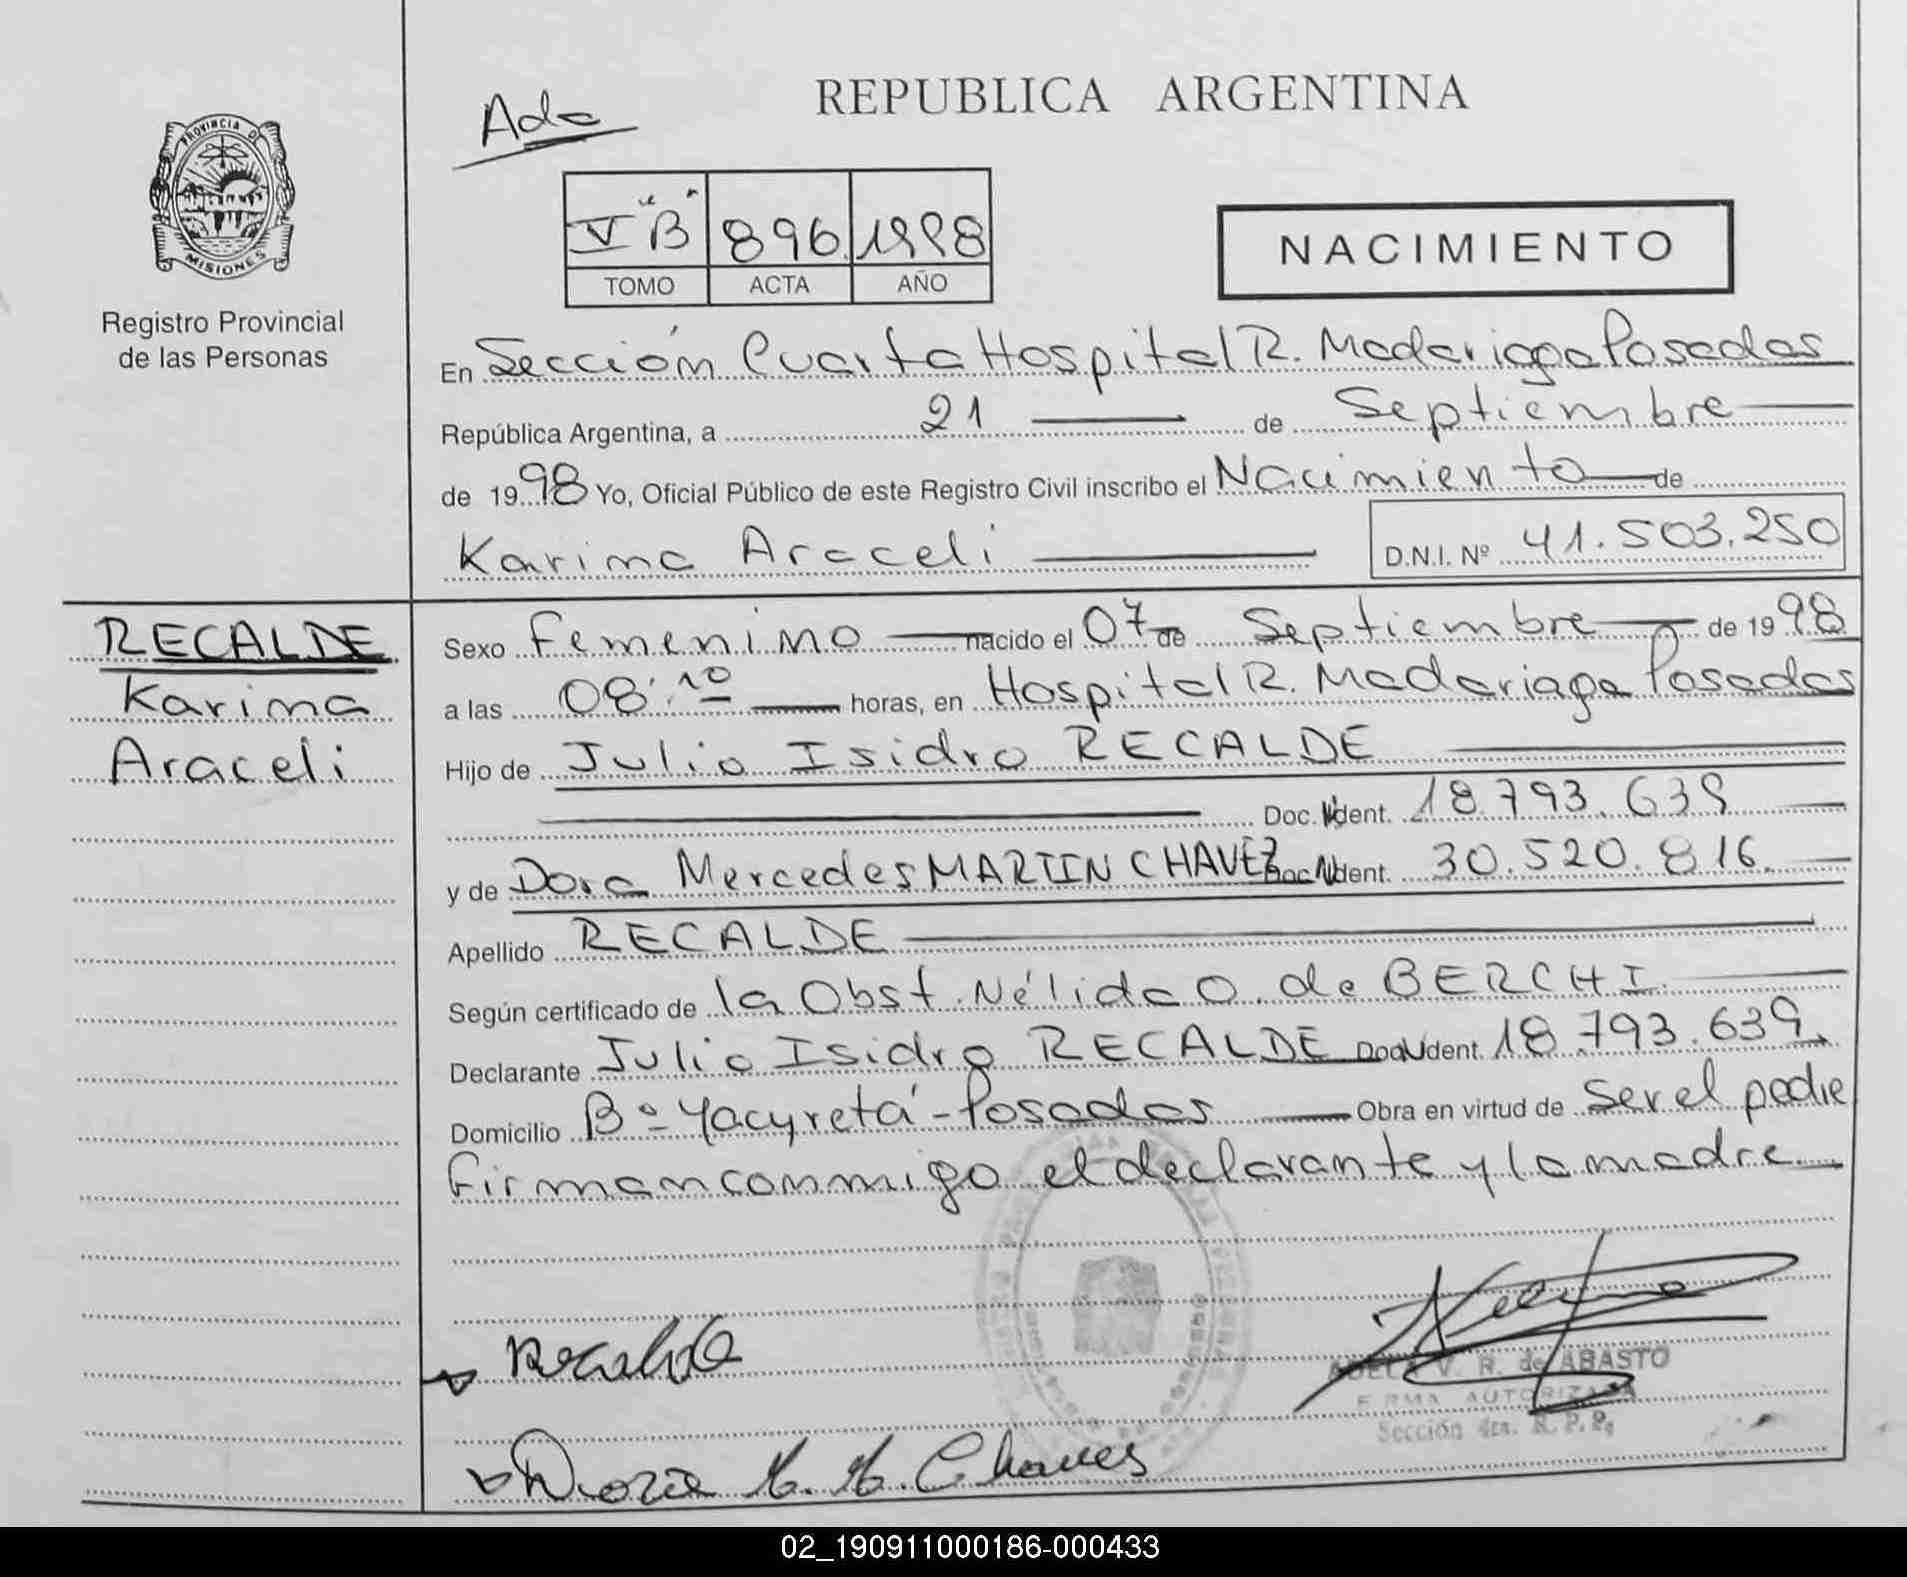 REPUBLICA ARGENTINA
Ada
V "B" 896 1998
TOMO ACTA AÑO
NACIMIENTO
PROVINCIA DE
MISIONES
Registro Provincial
de las Personas
En Sección Cuarta Hospital R. Madariaga Posadas
República Argentina, a 21 de Septiembre
de 1998 Yo, Oficial Público de este Registro Civil inscribo el Nacimiento de
Karina Araceli D.N.I. Nº 41.503.250
RECALDE
Karina
Araceli
Sexo Femenino nacido el 07 de Septiembre de 1998
a las 08:10 horas, en Hospital R. Madariaga Posadas
Hijo de Julio Isidro RECALDE
Doc. Ident. 18.793.639
y de Dora Mercedes MARTIN CHAVEZ Doc. Ident. 30.520.816.
Apellido RECALDE
Según certificado de la Obst. Nélida O. de BERCHI
Declarante Julio Isidro RECALDE Doc. Ident. 18.793.639.
Domicilio Bº Yacyretá - Posadas Obra en virtud de ser el padre
Firman conmigo el declarante y la madre.
Recalde
ADELA V. R. de ABASTO
FIRMA AUTORIZADA
Sección 4ta. R. P. P.
Dora M. M. Chaves
02_190911000186-000433